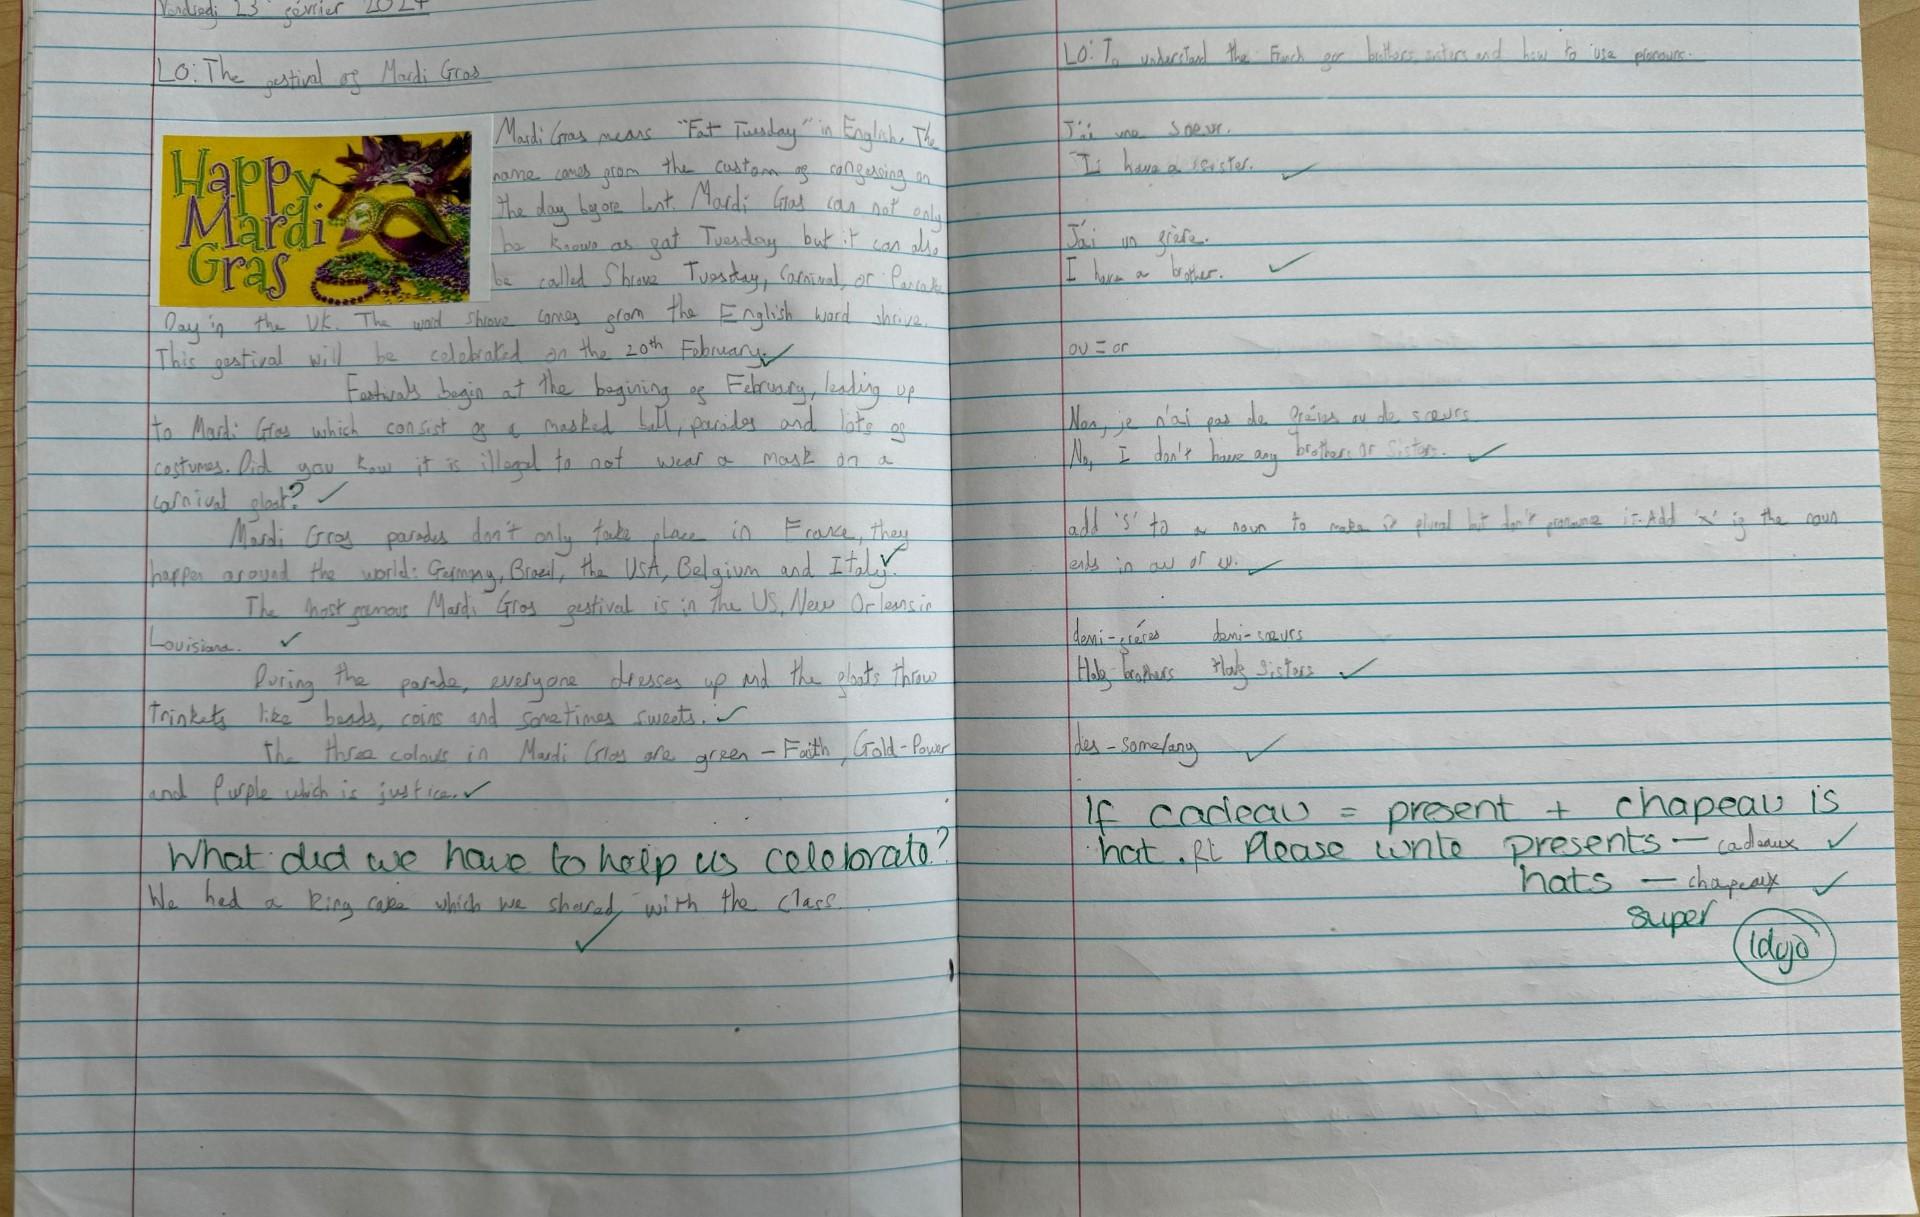 Vendredi 23 février 2024
LO: The festival of Mardi Gras
Happy
Mardi
Gras
Mardi Gras means "Fat Tuesday" in English. The
name comes from the custom of confessing on
the day before Lent. Mardi Gras can not only
be known as fat Tuesday but it can also
be called Shrove Tuesday, Carnival, or Pancake
Day in the UK. The word shrove comes from the English word shrive.
This festival will be celebrated on the 20th February.
Festivals begin at the begining of February, leading up
to Mardi Gras which consist of a masked ball, parades and lots of
costumes. Did you know it is illegal to not wear a mask on a
carnival float?
Mardi Gras parades don't only take place in France, they
happen around the world: Germany, Brazil, the USA, Belgium and Italy.
The most famous Mardi Gras festival is in the US, New Orleans in
Louisiana.
During the parade, everyone dresses up and the floats throw
trinkets like beads, coins and sometimes sweets.
The three colours in Mardi Gras are green - Faith, Gold - Power
and Purple which is justice.
What did we have to help us celebrate?
We had a King cake which we shared with the class.
LO: To understand the French for brothers, sisters and how to use pronouns.
J'ai une soeur.
I have a sister.
J'ai un frère.
I have a brother.
ou = or
Non, je n'ai pas de frères ou de sœurs.
No, I don't have any brothers or sisters.
add 's' to a noun to make it plural but don't pronounce it. Add 'x' if the noun
ends in au or
demi-fréres demi-sœurs
Half brothers Half sisters
des - some/any
If cadeau = present + chapeau is
hat. Rt Please write presents - cadeaux
hats - chapeaux
super